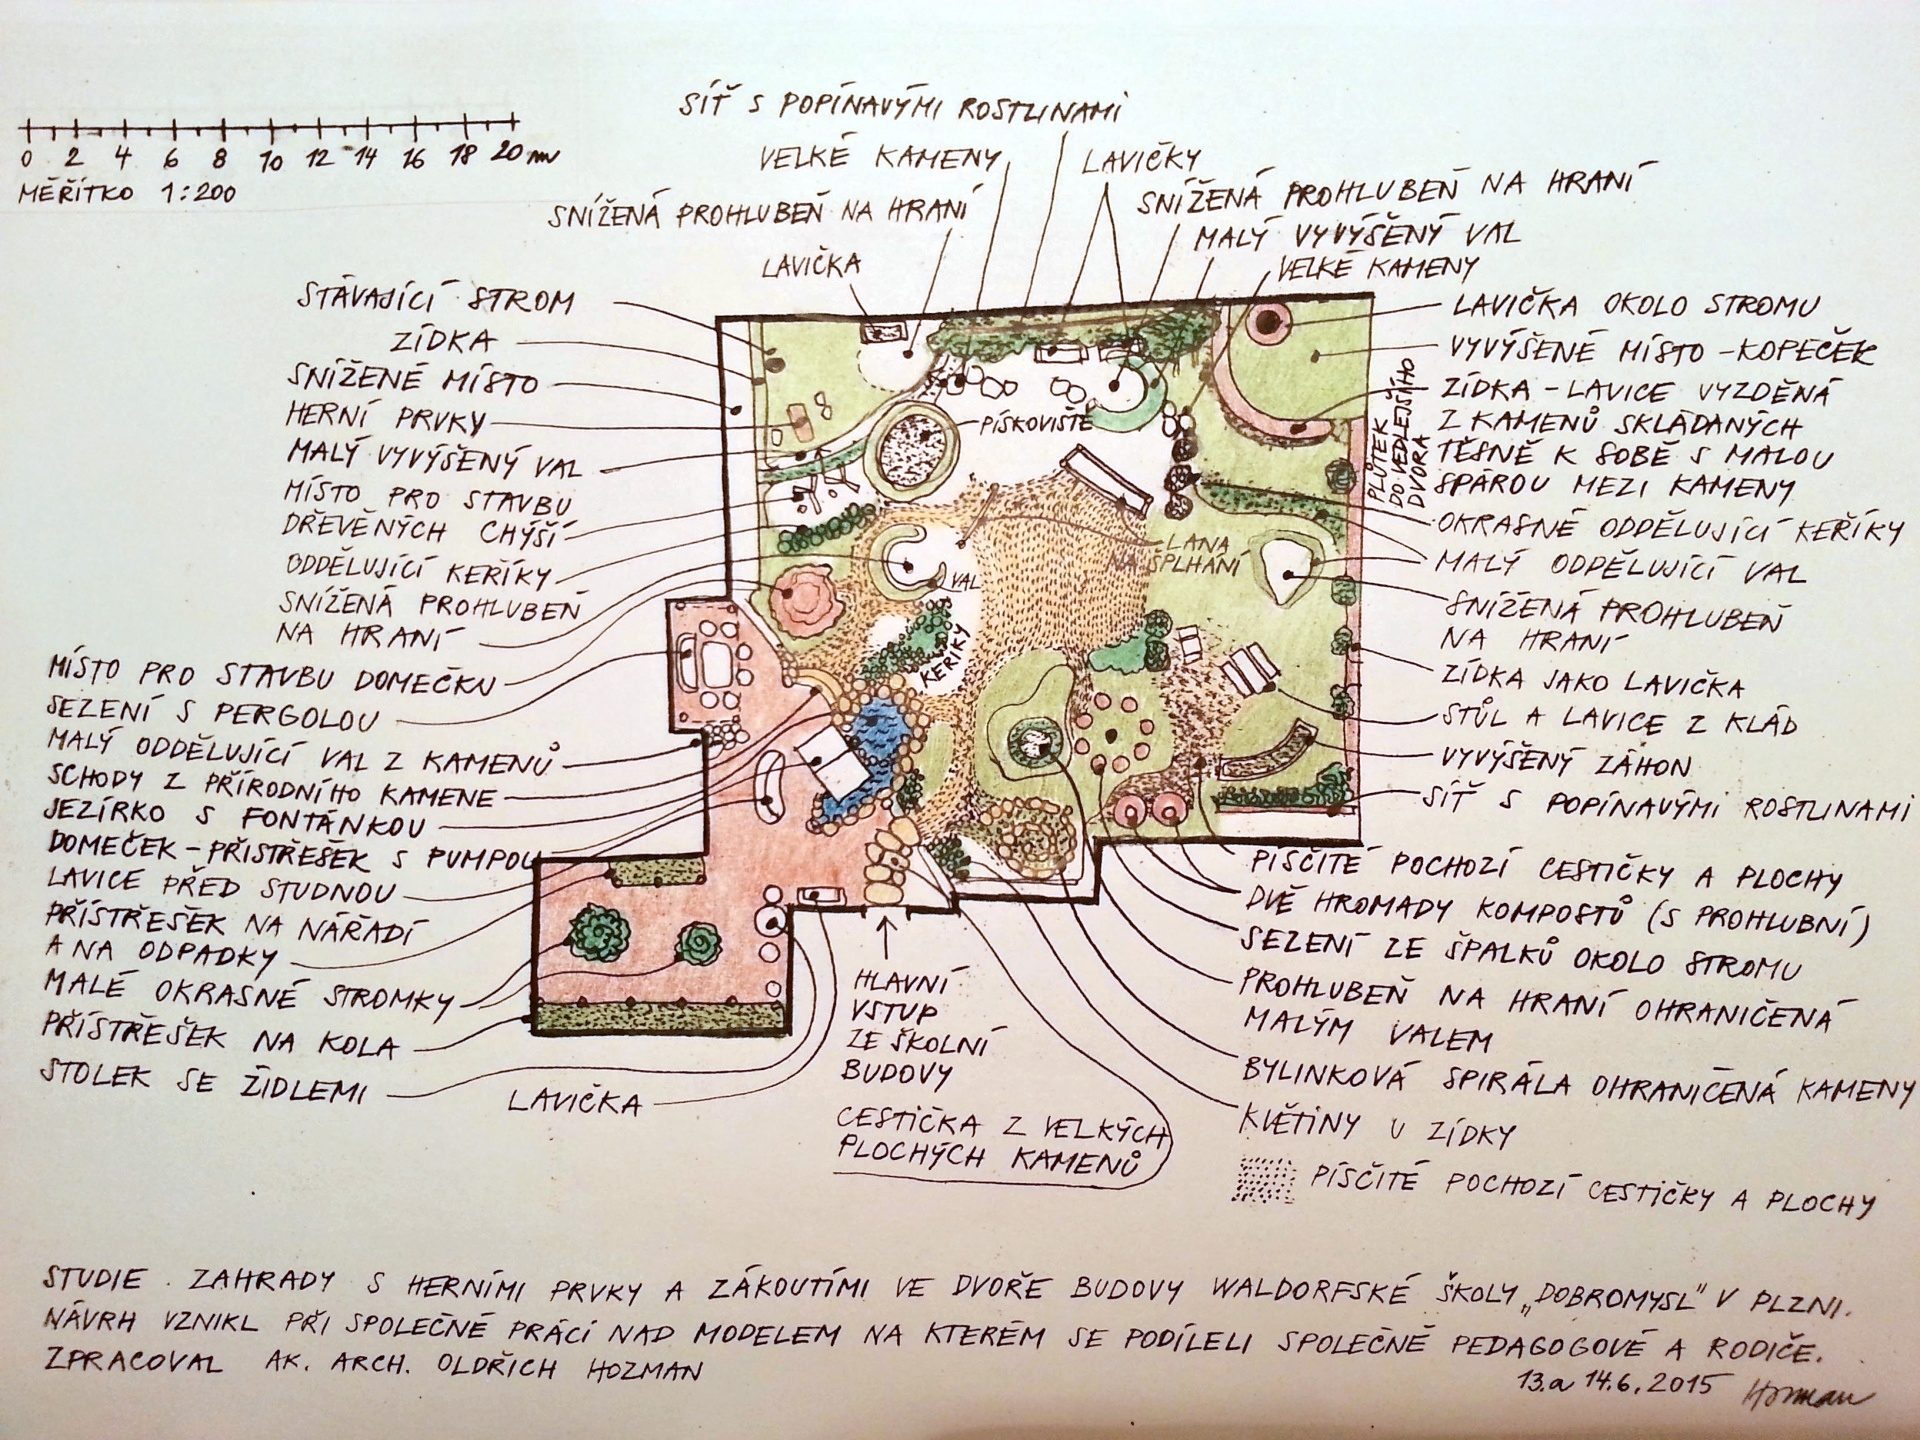 0 2 4 6 8 10 12 14 16 18 20 m
MĚŘÍTKO 1:200
SÍŤ S POPÍNAVÝMI ROSTLINAMI
VELKÉ KAMENY
LAVIČKY
SNÍŽENÁ PROHLUBEŇ NA HRANÍ
SNÍŽENÁ PROHLUBEŇ NA HRANÍ
MALÝ VYVÝŠENÝ VAL
LAVIČKA
VELKÉ KAMENY
STÁVAJÍCÍ STROM
ZÍDKA
SNÍŽENÉ MÍSTO
HERNÍ PRVKY
MALÝ VYVÝŠENÝ VAL
MÍSTO PRO STAVBU
DŘEVĚNÝCH CHÝŠÍ
ODDĚLUJÍCÍ KEŘÍKY
SNÍŽENÁ PROHLUBEŇ
NA HRANÍ
MÍSTO PRO STAVBU DOMEČKU
SEZENÍ S PERGOLOU
MALÝ ODDĚLUJÍCÍ VAL Z KAMENŮ
SCHODY Z PŘÍRODNÍHO KAMENE
JEZÍRKO S FONTÁNKOU
DOMEČEK-PŘÍSTŘEŠEK S PUMPOU
LAVICE PŘED STUDNOU
PŘÍSTŘEŠEK NA NÁŘADÍ
A NA ODPADKY
MALÉ OKRASNÉ STROMKY
PŘÍSTŘEŠEK NA KOLA
STOLEK SE ŽIDLEMI
LAVIČKA
PÍSKOVIŠTĚ
LANA
NA ŠPLHÁNÍ
VAL
KEŘÍKY
PLŮTEK
DO VEDLEJŠÍHO
DVORA
HLAVNÍ
VSTUP
ZE ŠKOLNÍ
BUDOVY
CESTIČKA Z VELKÝCH
PLOCHÝCH KAMENŮ
LAVIČKA OKOLO STROMU
VYVÝŠENÉ MÍSTO - KOPEČEK
ZÍDKA - LAVICE VYZDĚNÁ
Z KAMENŮ SKLÁDANÝCH
TĚSNĚ K SOBĚ S MALOU
SPÁROU MEZI KAMENY
OKRASNÉ ODDĚLUJÍCÍ KEŘÍKY
MALÝ ODDĚLUJÍCÍ VAL
SNÍŽENÁ PROHLUBEŇ
NA HRANÍ
ZÍDKA JAKO LAVIČKA
STŮL A LAVICE Z KLÁD
VYVÝŠENÝ ZÁHON
SÍŤ S POPÍNAVÝMI ROSTLINAMI
PÍSČITÉ POCHOZÍ CESTIČKY A PLOCHY
DVĚ HROMADY KOMPOSTŮ (S PROHLUBNÍ)
SEZENÍ ZE ŠPALKŮ OKOLO STROMU
PROHLUBEŇ NA HRANÍ OHRANIČENÁ
MALÝM VALEM
BYLINKOVÁ SPIRÁLA OHRANIČENÁ KAMENY
KVĚTINY U ZÍDKY
PÍSČITÉ POCHOZÍ CESTIČKY A PLOCHY
STUDIE ZAHRADY S HERNÍMI PRVKY A ZÁKOUTÍMI VE DVOŘE BUDOVY WALDORFSKÉ ŠKOLY „DOBROMYSL" V PLZNI.
NÁVRH VZNIKL PŘI SPOLEČNÉ PRÁCI NAD MODELEM NA KTERÉM SE PODÍLELI SPOLEČNĚ PEDAGOGOVÉ A RODIČE.
ZPRACOVAL AK. ARCH. OLDŘICH HOZMAN
13. a 14.6.2015 Hozman